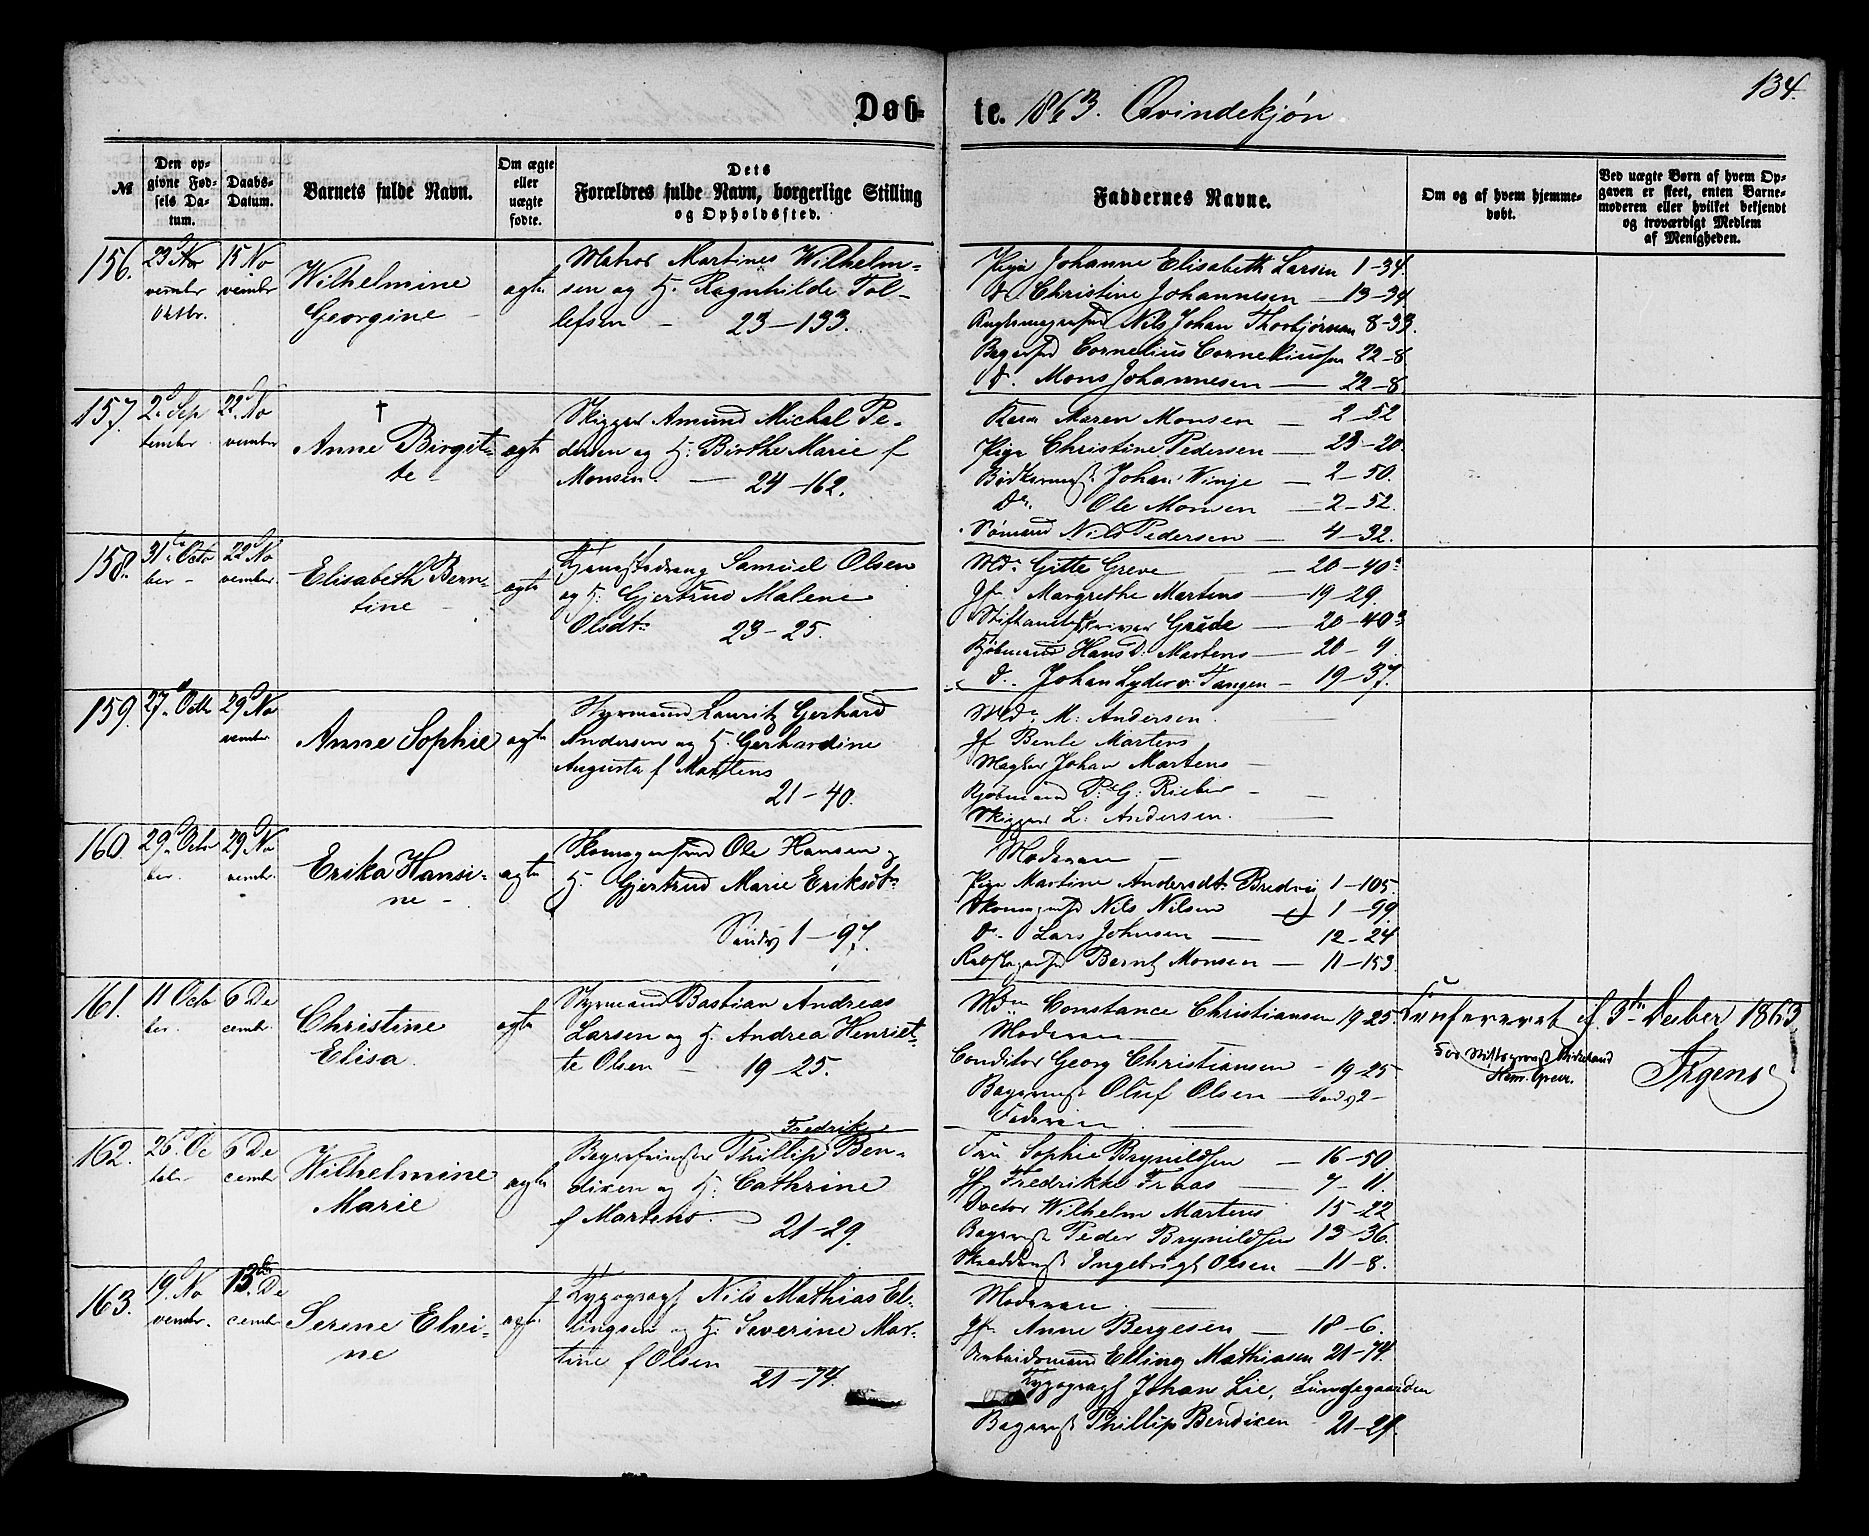 134.
Døb- te. 1863. Qvindekjøn
№
Den opgivne Fødsels Datum.
Daabs-Datum.
Barnets fulde Navn.
Om ægte eller uægte fødte.
Dets Forældres fulde Navn, borgerlige Stilling og Opholdssted.
Faddernes Navne.
Om og af hvem hjemmedøbt.
Ved uægte Børn af hvem Opgaven er skeet, enten Barnemoderen eller hvilket bekjendt og troværdigt Medlem af Menigheden.
156. 23 No 15 No
vember vember
Oktbr.
Wilhelmine
Georgine
ægte
Matros Martines Wilhelm-
sen og H. Ragnhilde Tol-
lefsen - 23-133.
Pige Johanne Elisabeth Larsen 1-34.
d. Christine Johannesen - 13-34.
Nils Johan Thorbjørnsen 8-33.
Cornelius Corneliussen 22-8
d. Mons Johannesen - 22-8
157. 2 Sep 22 No
tember vember
†
Anne Birgit-
te
ægte
Skipper Amund Michal Pe-
dersen og H: Birthe Marie f
Monsen - 24-162.
Kone Maren Monsen - 2-52
Pige Christine Pedersen - 23-20.
Bødkermst Johan Winje - 2-50.
Do. Ole Monsen - 2-52.
Sømand Nils Pedersen - 4-32.
158. 31 Octo 22 No
ber - vember
Elisabeth Bern-
tine
ægte
Samuel Olsen
og H: Gjertrud Malene
Olsdtr 23-25.
Md. Gitte Greve - 20-40a
Jfr. Margrethe Martens - 19-29.
Greve - 20-40a
Kjøbmand Hans D. Martens - 20-9.
d. Johan Lyder v. Tangen - 19-37.
159. 27 Octb 29 No
vember
Anne Sophie
ægte
Styrmand Lauritz Gerhard
Andersen og H. Gerhardine
Augusta f Martens
21-40.
Md. M: Andersen.
Jf Bente Martens
Mægler Johan Martens -
Kjøbmand P: G: Rieber -
Skipper L: Andersen.
160. 29 Octo 29 No
ber. vembr.
Erika Hansi-
ne -
ægte
Skomagersvend Ole Hansen og
H. Gjertrud Marie Eriksdtr
Sandv 1-97.
Moderen -
Pige Martine Andersdtr Bredvig 1-105.
Skomagersvd Nils Nilsen 1-99.
d. Lars Johnsen - 12-24
Rebslagersvd Bernt Monsen - 11-153
161. 11 Octo 6 De
ber. cembr.
Christine
Elisa.
ægte
Styrmand Bastian Andreas
Larsen og H. Andrea Henriet-
te Olsen - 19-25.
Mdm Constance Christiansen 19-25.
Moderen
Conditor Georg Christiansen - 19-25
Bagermst Oluf Olsen - Sandv 2-
Faderen
Confereret f. 3die Decber 1863
Irgens
162. 26 Oc 6 De
tobr cembr
Wilhelmine
Marie
ægte
Fredrik
Phillip Ben-
dixen og H: Cathrine
f Martens. 21-29.
Fru Sophie Brynildsen - 16-50
Jf Fredrikke Fraas - 7-11.
Doctor Wilhelm Martens 15-22
Bagermst Peder Brynildsen 13-36.
Skræddermst Ingebrigt Olsen - 11-8.
163. 19 No 13de De
vembr. cembr
Serene Elvi-
ne
ægte
Typograph Nils Mathias El-
lingsen og H: Severine Mar-
tine f Olsen
21-74.
Moderen.
Jfr Anne Bergesen - 18-6.
Arbeidsmand Elling Mathiasen 21-74.
Typograph Johan Lie, Lungegaarden
Bagermst Phillip Bendixen - 21-29.